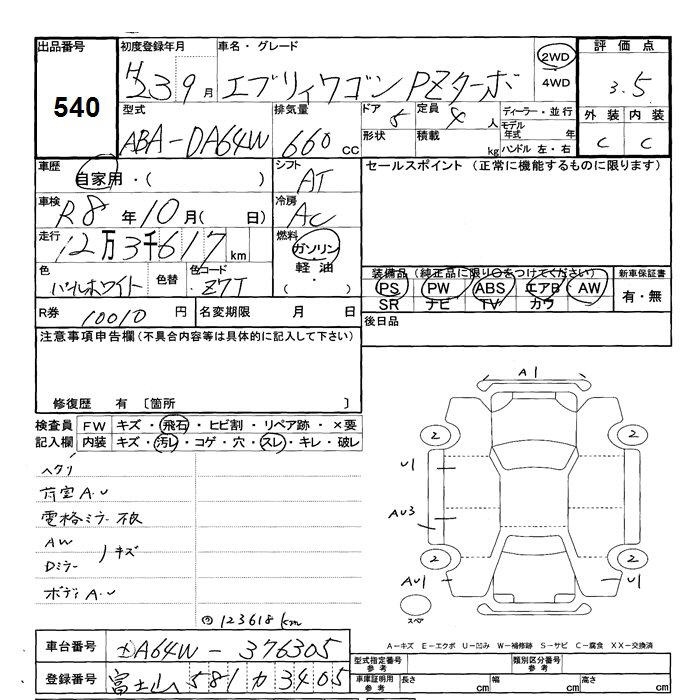 出品番号 初度登録年月 車名・グレード 2WD 評価点
540 H23 9月 エブリィワゴン PZターボ 4WD 3.5
型式 排気量 ドア 5 定員 4人 ディーラー・並行 外装 内装
ABA-DA64W 660cc 形状 積載 kg モデル年式 年 C C
ハンドル 左・右
車歴 シフト セールスポイント (正常に機能するものに限ります)
自家用・( ) AT
車検 R8年10月( 日) 冷房 AC
走行 12万3千617km 燃料 ガソリン
軽油
( ・ )
色 パールホワイト 色替 色コード Z7T
装備品(純正品に限り○をつけてください) 新車保証書
PS PW ABS エアB AW 有・無
SR ナビ TV カワ
R券 10010円 名変期限 月 日 後日品
注意事項申告欄(不具合内容等は具体的に記入して下さい)
修復歴 有 〔箇所 〕
検査員 FW キズ・飛石・ヒビ割・リペア跡・×要
記入欄 内装 キズ・汚レ・コゲ・穴・スレ・キレ・破レ
ヘタリ
荷室A.U
電格ミラー不良
AW
Dミラー キズ
ボディA.U
123618km
A1
2 2
U1
AU3
2 2
AU1 U1
スペア
A-キズ E-エクボ U-凹み W-補修跡 S-サビ C-腐食 XX-交換済
車台番号 DA64W-376305
登録番号 富士山 581 カ 3405
型式指定番号 参考 類別区分番号 参考
車庫証明用 参考 長さ cm 幅 cm 高さ cm